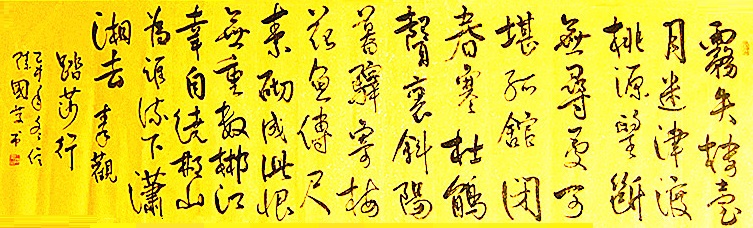 霧失樓臺
月迷津渡
桃源望斷
無尋處可
堪孤館閉
春寒杜鵑
聲裏斜陽
暮驛寄梅
花魚傳尺
素砌成此恨
無重數郴江
幸自繞郴山
為誰流下瀟
湘去 秦觀
踏莎行